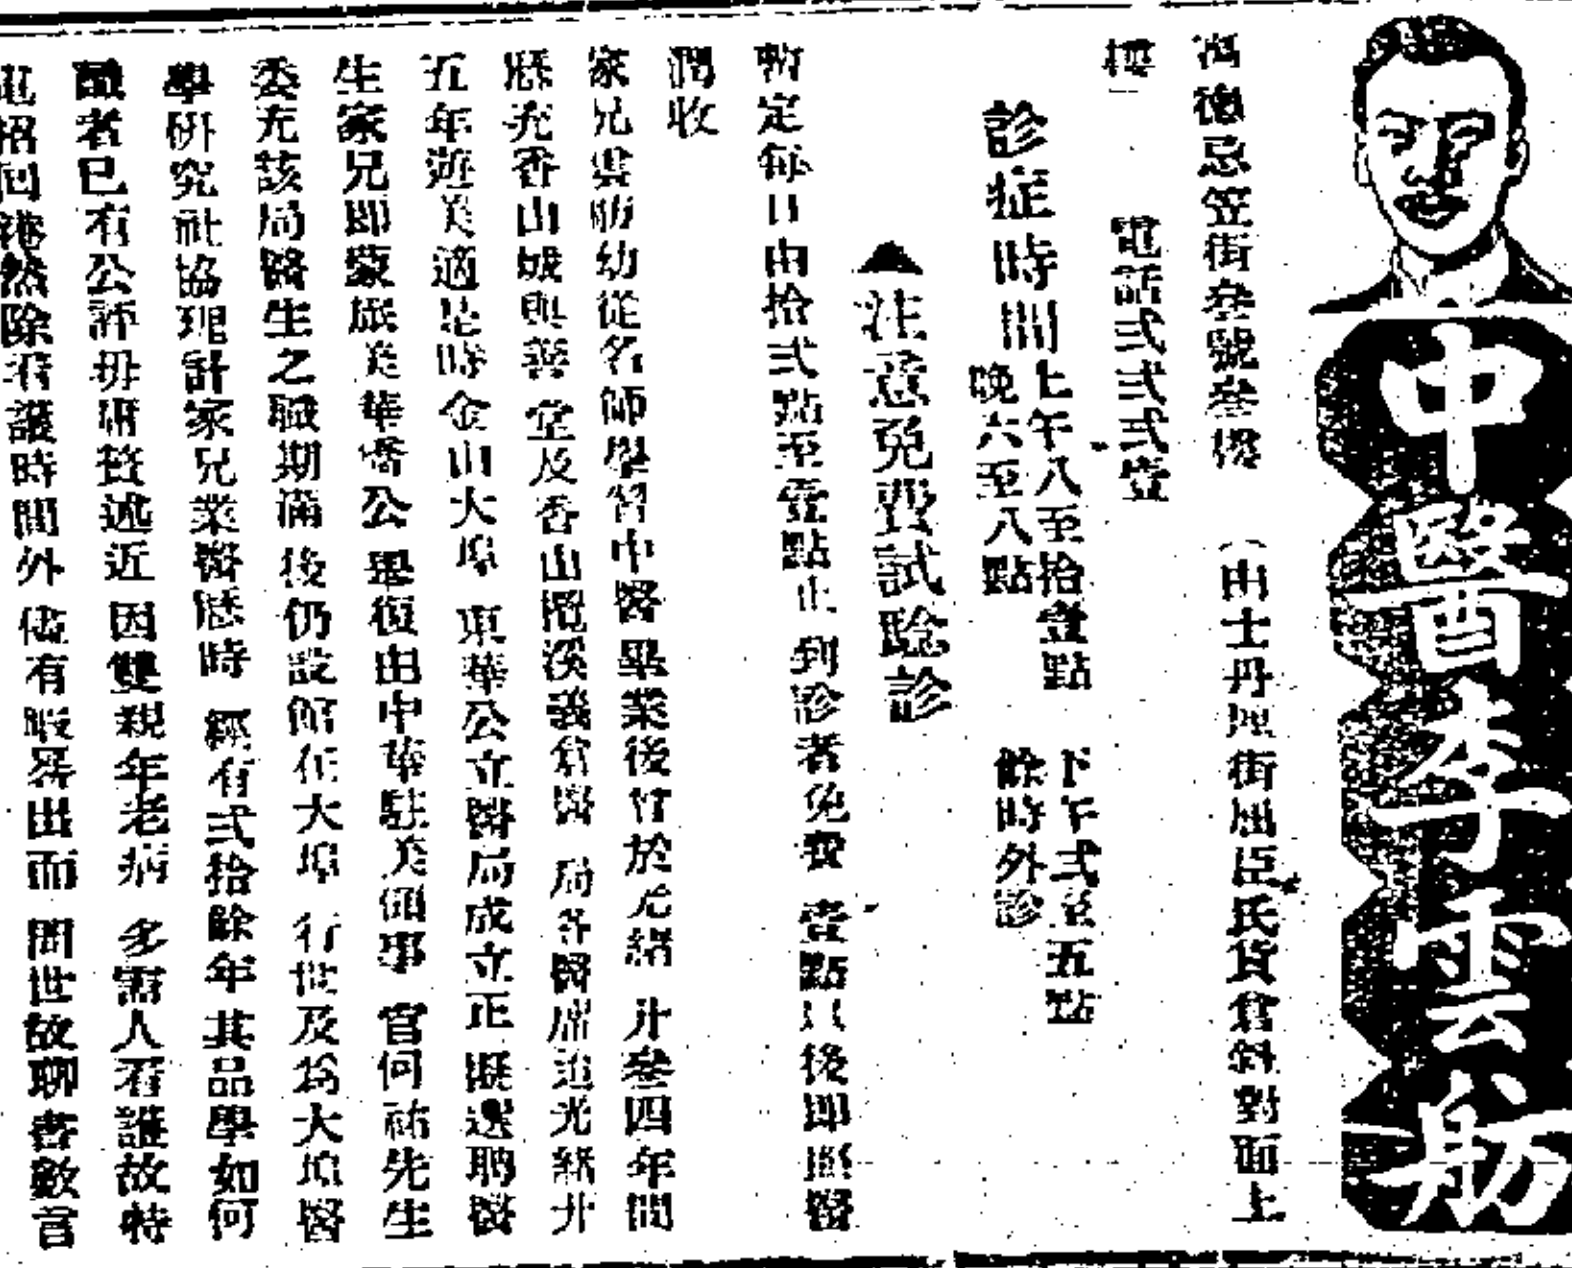 中醫李雲舫
德忌笠街叁號叁樓（由士丹利街屈臣氏貨倉斜對面上
樓
電話弍弍弍壹
診症時間
上午八至拾壹點　下午弍至五點
晚六至八點　餘時外診
▲注意免費試騐診
暫定每日由拾弍點至壹點止到診者免費壹點以後即照醫
潤收
家兄雲舫幼從名師學習中醫畢業後曾於光緒廾叁四年間
歷充香山城與善堂及香山欖溪義倉醫局各醫席迨光緒廾
五年遊美適是時金山大埠東華公立醫局成立正旣選聘醫
生家兄即蒙旅美華僑公舉復由中華駐美領事官何祐先生
委充該局醫生之職期滿後仍設館在大埠行世及爲大埠醫
學研究社協理計家兄業醫歷時經有弍拾餘年其品學如何
識者已有公評毋庸贅述近因雙親年老病多需人看護故特
電招回港然除看護時間外儘有暇晷出而問世故聊書數言